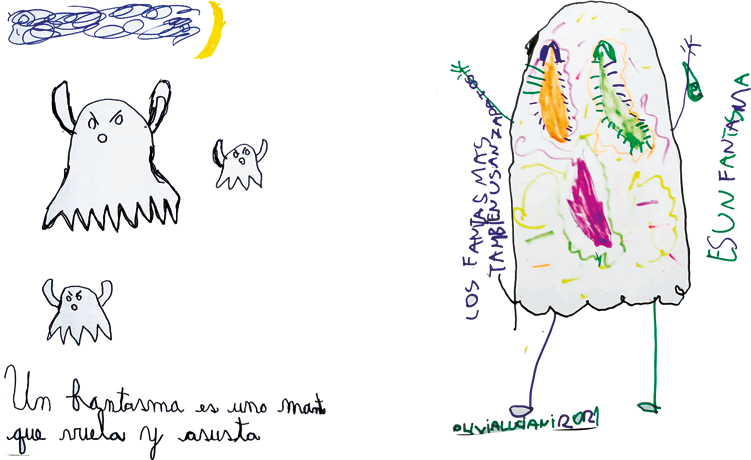 Un fantasma es uno manto
que vuela y asusta
LOS FANTASMAS
TAMBIEN USAN ZAPATOS
ES UN FANTASMA